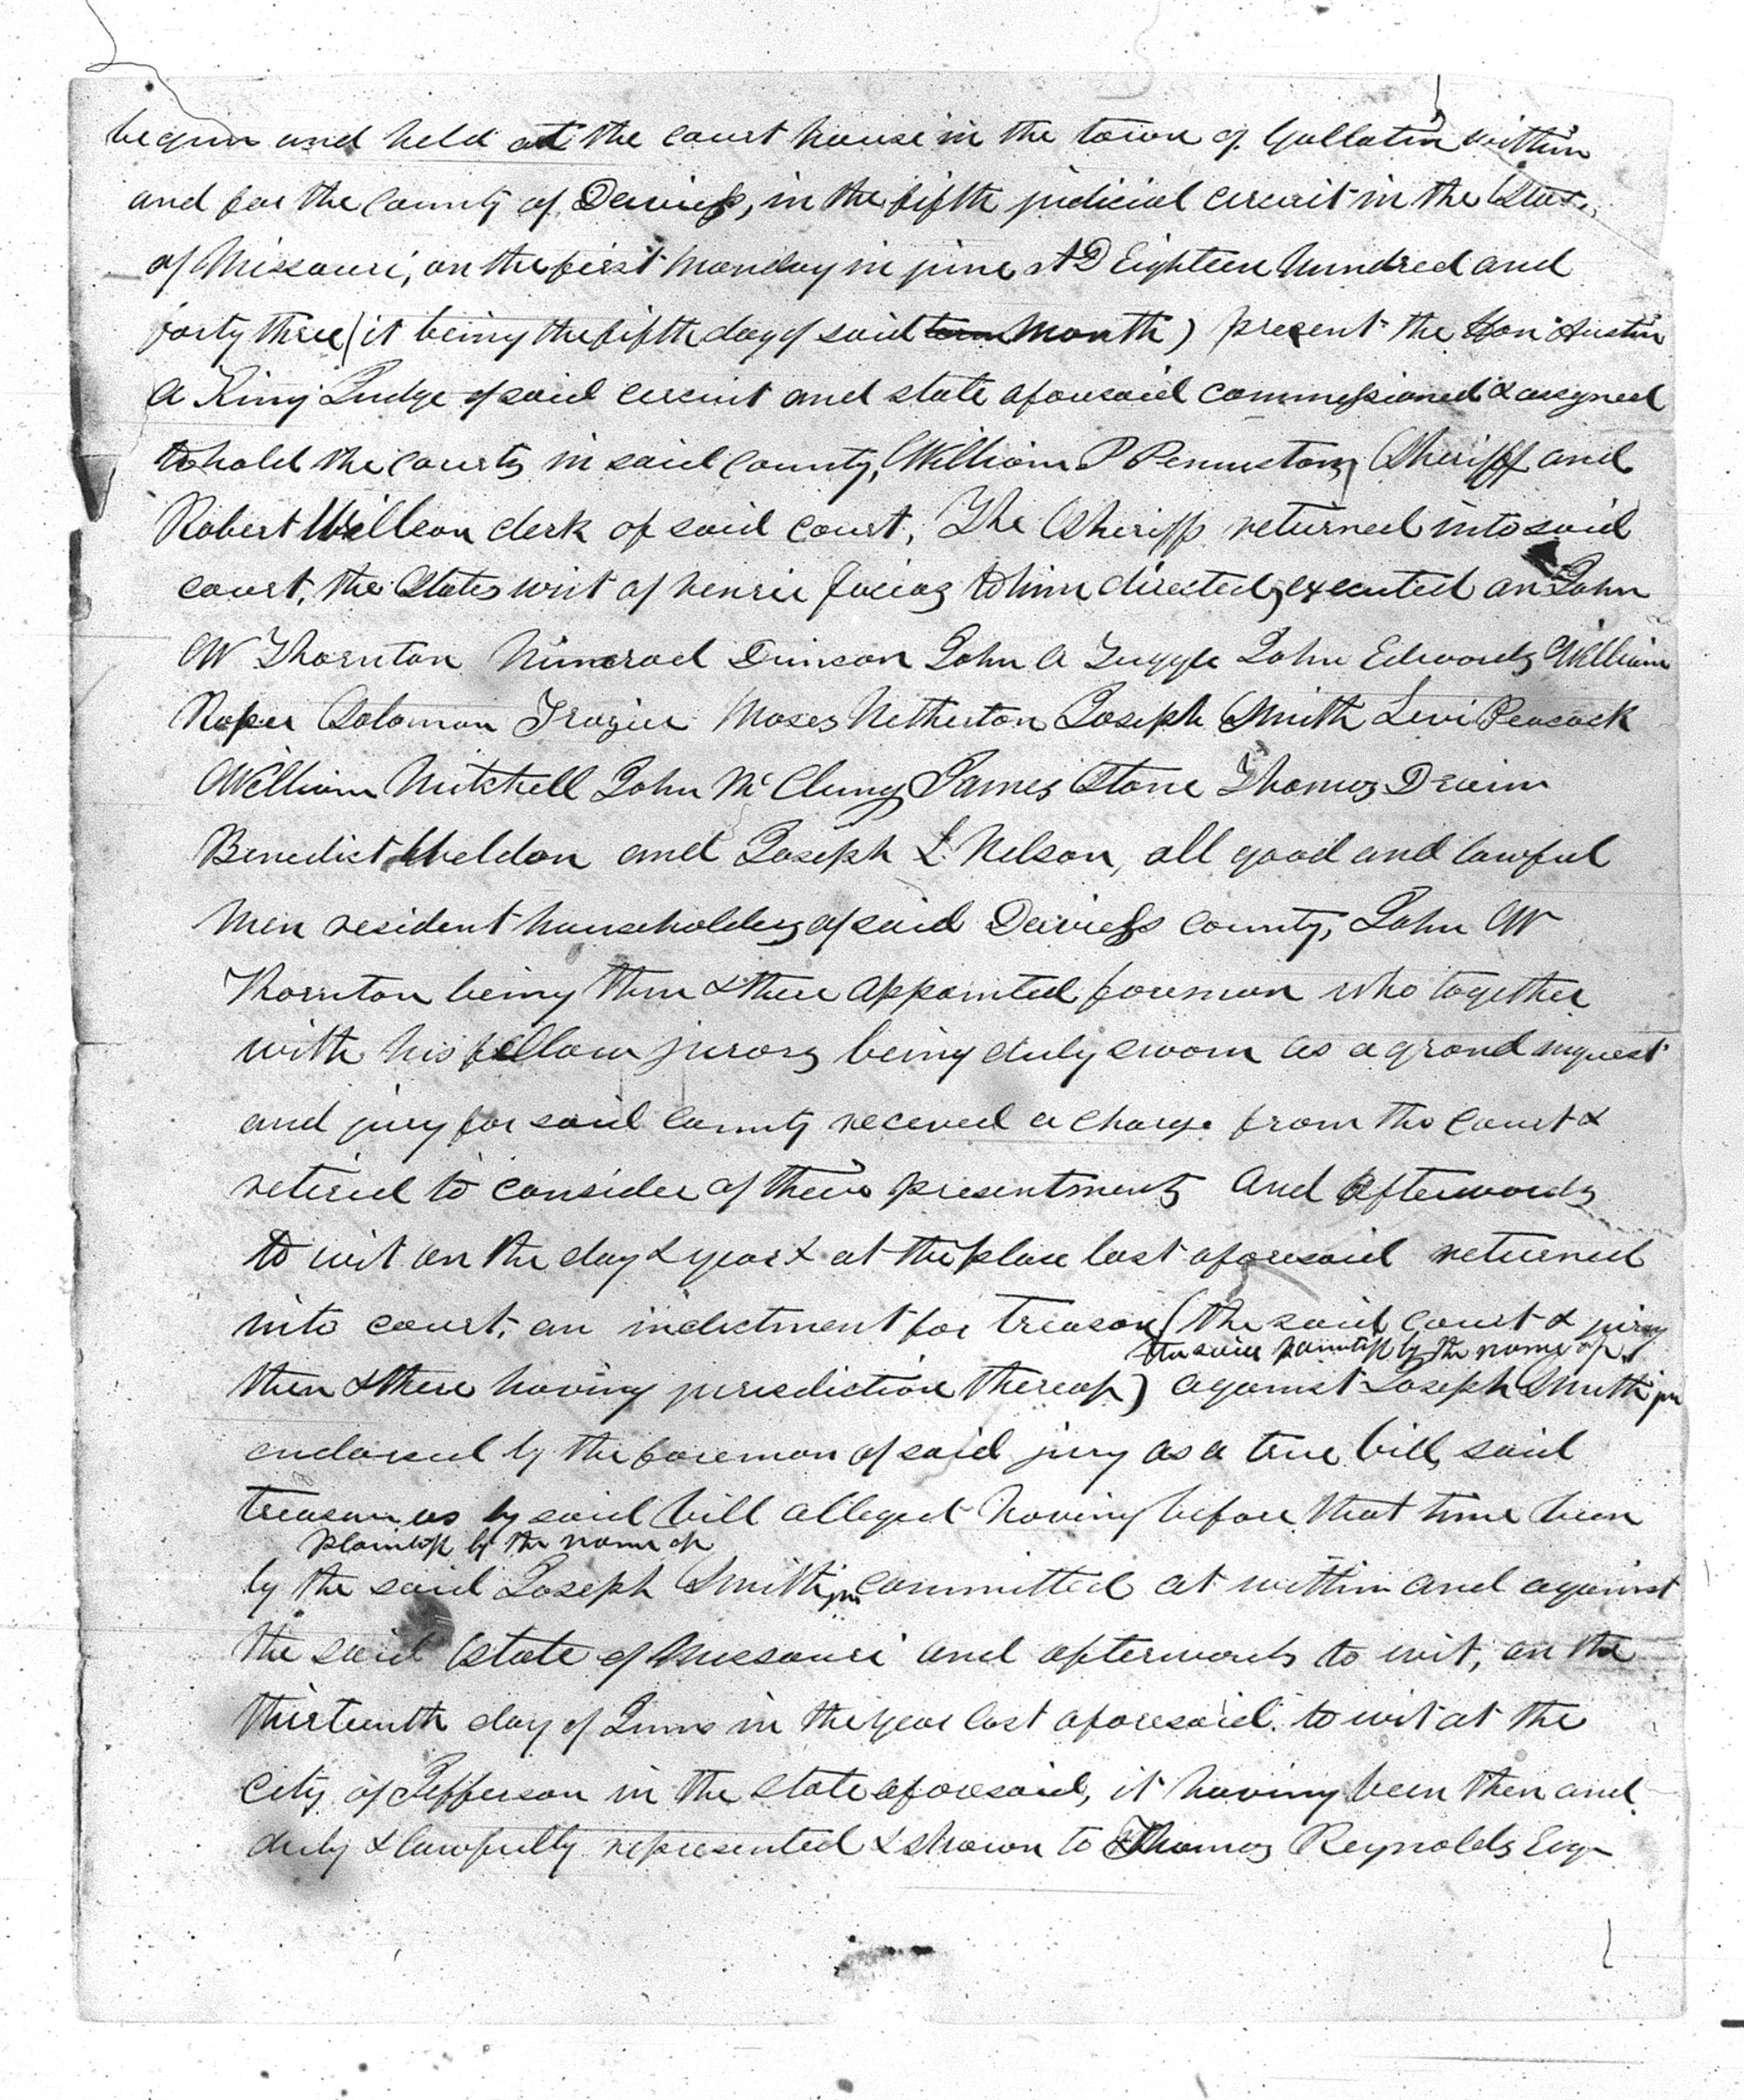 begun and held at the court house in the town of Gallatin within
and for the County of Daviess, in the fifth judicial circuit in the State
of Missouri, on the first Monday in june AD Eighteen Hundred and
forty three (it being the fifth day of said term Month) present the Hon Austin
A King Judge of said circuit and state aforesaid commissioned & assigned
to hold the courts in said county, William P Penniston, Sheriff and
Robert Willson clerk of said court, The Sheriff returned into said
court, the States writ of venrie facias to him directed, executed on John
W Thornton Nimorod Dunson John A Tuggle John Edwards William
Roper Solomon Frazier Moses Netherton Joseph Smith Levi Peacock
William Mitchell John McClung James Stone Thomas
Benedict Weldon and Joseph L. Nelson, all good and lawful
Men resident householders of said Daviess county, John W
Thornton being then & there appointed foreman who together
with his fellow jurors being duly sworn as a grand inquest
and jury for said County received a charge from the Court &
retired to consider of their presentments And afterwards
to wit on the day & year & at the place last aforesaid returned
into court, an indictment for treason (the said court & jury
the said plaintiff by the name of
then & there having jurisdiction thereof) against Joseph Smith jr
endorsed by the foreman of said jury as a true bill, said
treason as by said bill alleged having before that time been
plaintiff by the name of
by the said Joseph Smith jr. committed at within and against
the said State of Missouri and afterwards to wit, on the
thirteenth day of June in the year last aforesaid. to wit at the
City of Jefferson in the state aforesaid, it having been then and
duly & lawfully represented & shown to Thomas Reynolds Esqr